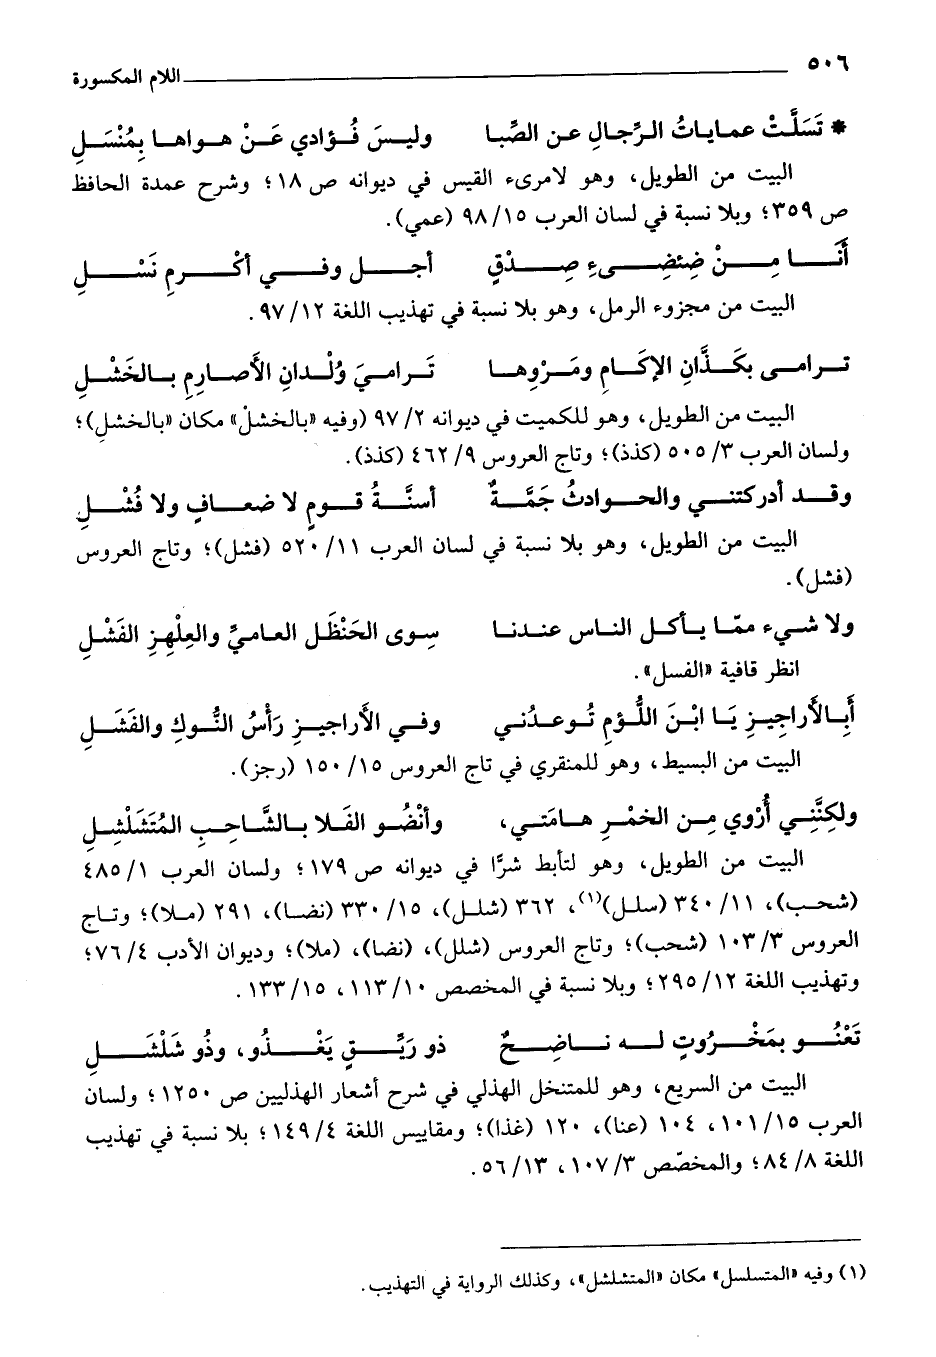 ٥٠٦ اللام المكسورة
* تَسَلَّتْ عمايات الرِّجالِ عن الصِّبا وليسَ فُؤادي عَنْ هواها بِمُنْسَلِ
البيت من الطويل، وهو لامرىء القيس في ديوانه ص ١٨؛ وشرح عمدة الحافظ
ص ٣٥٩؛ وبلا نسبة في لسان العرب ٩٨/١٥ (عمي).
أَنَا مِنْ ضِئضِىءِ صِدْقٍ أجل وفي أكْرمِ نَسْلِ
البيت من مجزوء الرمل، وهو بلا نسبة في تهذيب اللغة ٩٧/١٢.
ترامى بكَذَّانِ الإكَامِ ومَرْوِها تَراميَ وُلْدانِ الأَصارِمِ بالخَشْلِ
البيت من الطويل، وهو للكميت في ديوانه ٩٧/٢ (وفيه «بالخشلْ» مكان «بالخشلِ)؛
ولسان العرب ٥٠٥/٣ (كذذ)؛ وتاج العروس ٤٦٢/٩ (كذذ).
وقد أدركتني والحوادثُ جَمَّةٌ أسنَّةُ قومٍ لا ضعافٍ ولا فُشْلِ
البيت من الطويل، وهو بلا نسبة في لسان العرب ٥٢٠/١١ (فشل)؛ وتاج العروس
(فشل).
ولا شيء ممّا يأكل الناس عندنا سِوى الحَنْظَل العاميِّ والعِلْهِزِ الفَشْلِ
انظر قافية «الفسل».
أَبِالأَراجِيزِ يَا ابْنَ اللُّؤمِ تُوعدُني وفي الأَراجيزِ رَأْسُ النُّوكِ والفَشَلِ
البيت من البسيط، وهو للمنقري في تاج العروس ١٥٠/١٥ (رجز).
ولكِنَّنِي أُرْوي مِن الخمْرِ هامَتي، وأنْضُو الفَلا بالشَّاحِبِ المُتَشَلْشِلِ
البيت من الطويل، وهو لتأبط شرًّا في ديوانه ص ١٧٩؛ ولسان العرب ٤٨٥/١
(شحب)، ٣٤٠/١١ (سلل)(١)، ٣٦٢ (شلل)، ٣٣٠/١٥ (نضا)، ٢٩١ (ملا)؛ وتاج
العروس ١٠٣/٣ (شحب)؛ وتاج العروس (شلل)، (نضا)، (ملا)؛ وديوان الأدب ٧٦/٤؛
وتهذيب اللغة ٢٩٥/١٢؛ وبلا نسبة في المخصص ١١٣/١٠، ١٣٣/١٥.
تَعْنُو بمَخْرُوتٍ له ناضِحٌ ذو رَيِّقٍ يَغْذُو، وذُو شَلْشَلِ
البيت من السريع، وهو للمتنخل الهذلي في شرح أشعار الهذليين ص ١٢٥٠؛ ولسان
العرب ١٠١/١٥، ١٠٤ (عنا)، ١٢٠ (غذا)؛ ومقاييس اللغة ١٤٩/٤؛ بلا نسبة في تهذيب
اللغة ٨٤/٨؛ والمخصّص ١٠٧/٣، ٥٦/١٣.
(١) وفيه «المتسلسل» مكان «المتشلشل»، وكذلك الرواية في التهذيب.